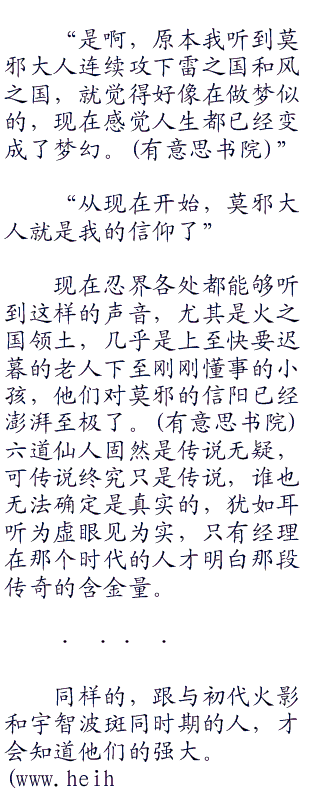 “是啊，原本我听到莫
邪大人连续攻下雷之国和风
之国，就觉得好像在做梦似
的，现在感觉人生都已经变
成了梦幻。(有意思书院)”
“从现在开始，莫邪大
人就是我的信仰了”
现在忍界各处都能够听
到这样的声音，尤其是火之
国领土，几乎是上至快要迟
暮的老人下至刚刚懂事的小
孩，他们对莫邪的信阳已经
澎湃至极了。(有意思书院)
六道仙人固然是传说无疑，
可传说终究只是传说，谁也
无法确定是真实的，犹如耳
听为虚眼见为实，只有经理
在那个时代的人才明白那段
传奇的含金量。
. . . .
同样的，跟与初代火影
和宇智波斑同时期的人，才
会知道他们的强大。
(www.heih